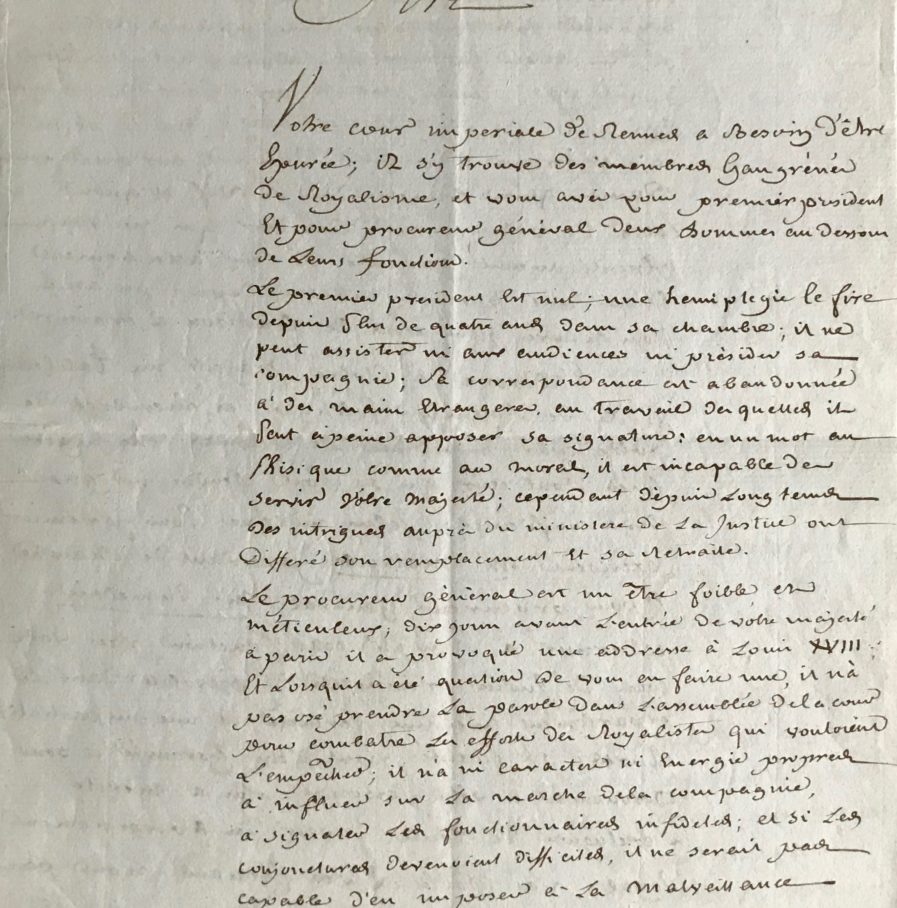 Sire
Votre cour imperiale de Rennes a Besoin d'être
Epurée; il s'y trouve des membres Gangrénés
de Royalisme, et vous avés pour premier président
Et pour procureur général deux hommes au dessous
de Leurs fonctions.
Le premier président Est nul; une hemiplegie le fixe
depuis plus de quatre ans dans sa chambre; il ne
peut assister ni aux audiences ni présider sa
compagnie; Sa correspondance est abandonnée
à des mains Etrangeres, au travail des quelles il
peut à peine apposer sa signature; en un mot au
phisique comme au moral, il est incapable de
servir Votre Majesté; cependant dépuis Longtems
des intrigues auprès du ministere de La Justice ont
Differé son remplacement Et sa Retraite.
Le procureur général est un être foible et
méticuleux; dix jours avant L'entrée de votre majesté
à paris il a provoqué une addresse à Louis XVIII;
Et Lorsqu'il a été question de vous en faire une, il n'a
pas osé prendre La parole dans L'assemblée de la cour
pour combatre Les efforts des Royalistes qui vouloient
L'empêcher; il n'a ni caractere ni Energie propres
à influer sur La marche de la compagnie,
à signaler Les fonctionnaires infideles; et si Les
conjonctures devenoient difficiles, il ne serait pas
capable d'en imposer à La Malveillance